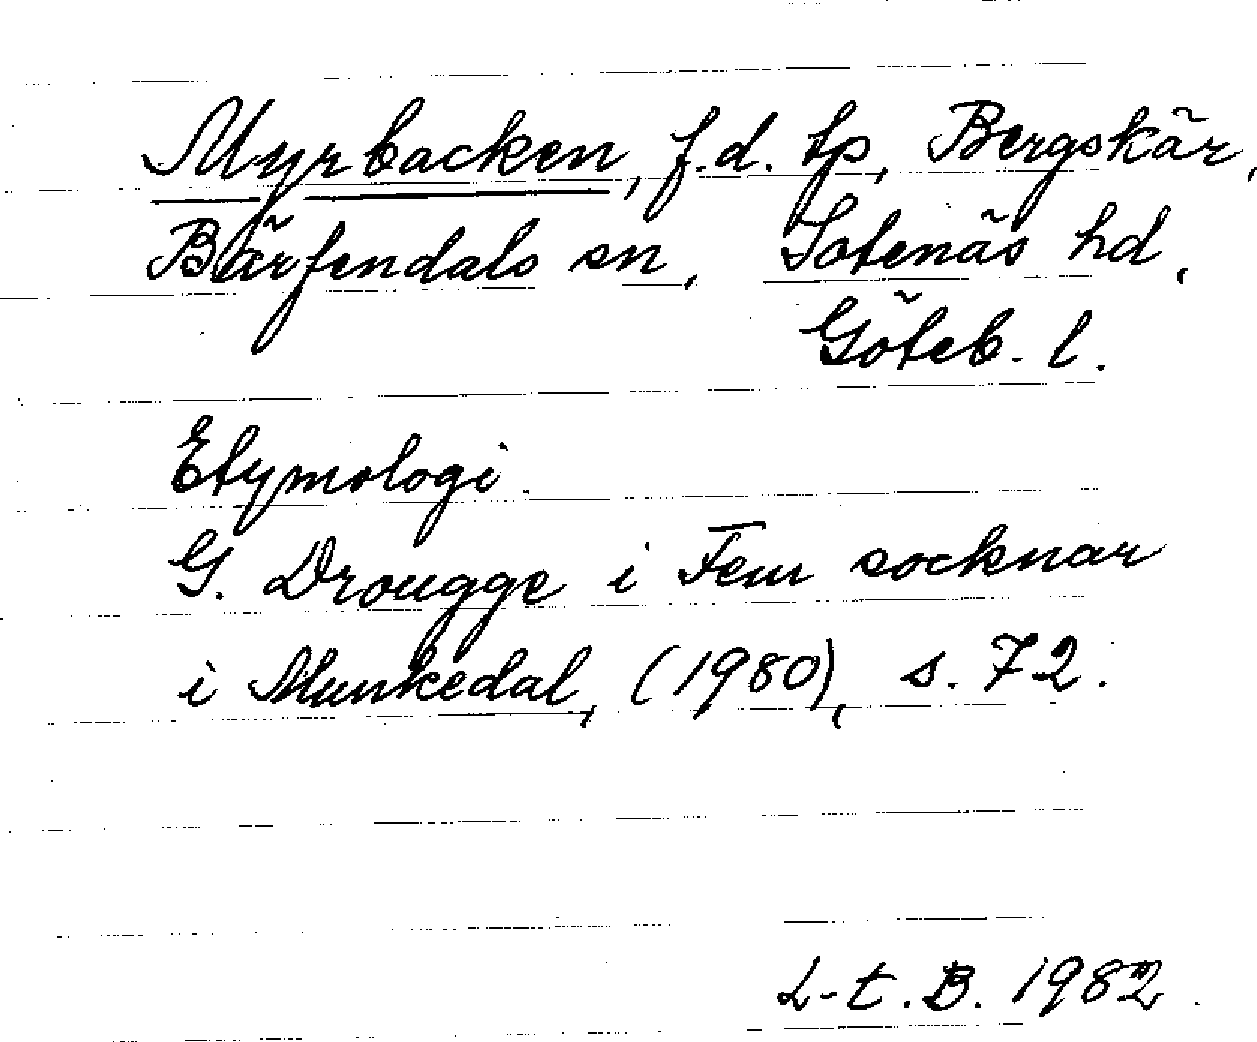 Myrbacken, f.d. tp, Bergskär,
Bärfendals sn, Sotenäs hd,
Göteb. l.
Etymologi.
G. Drougge i Fem socknar
i Munkedal, (1980), s. 72.
L-t. B. 1982.